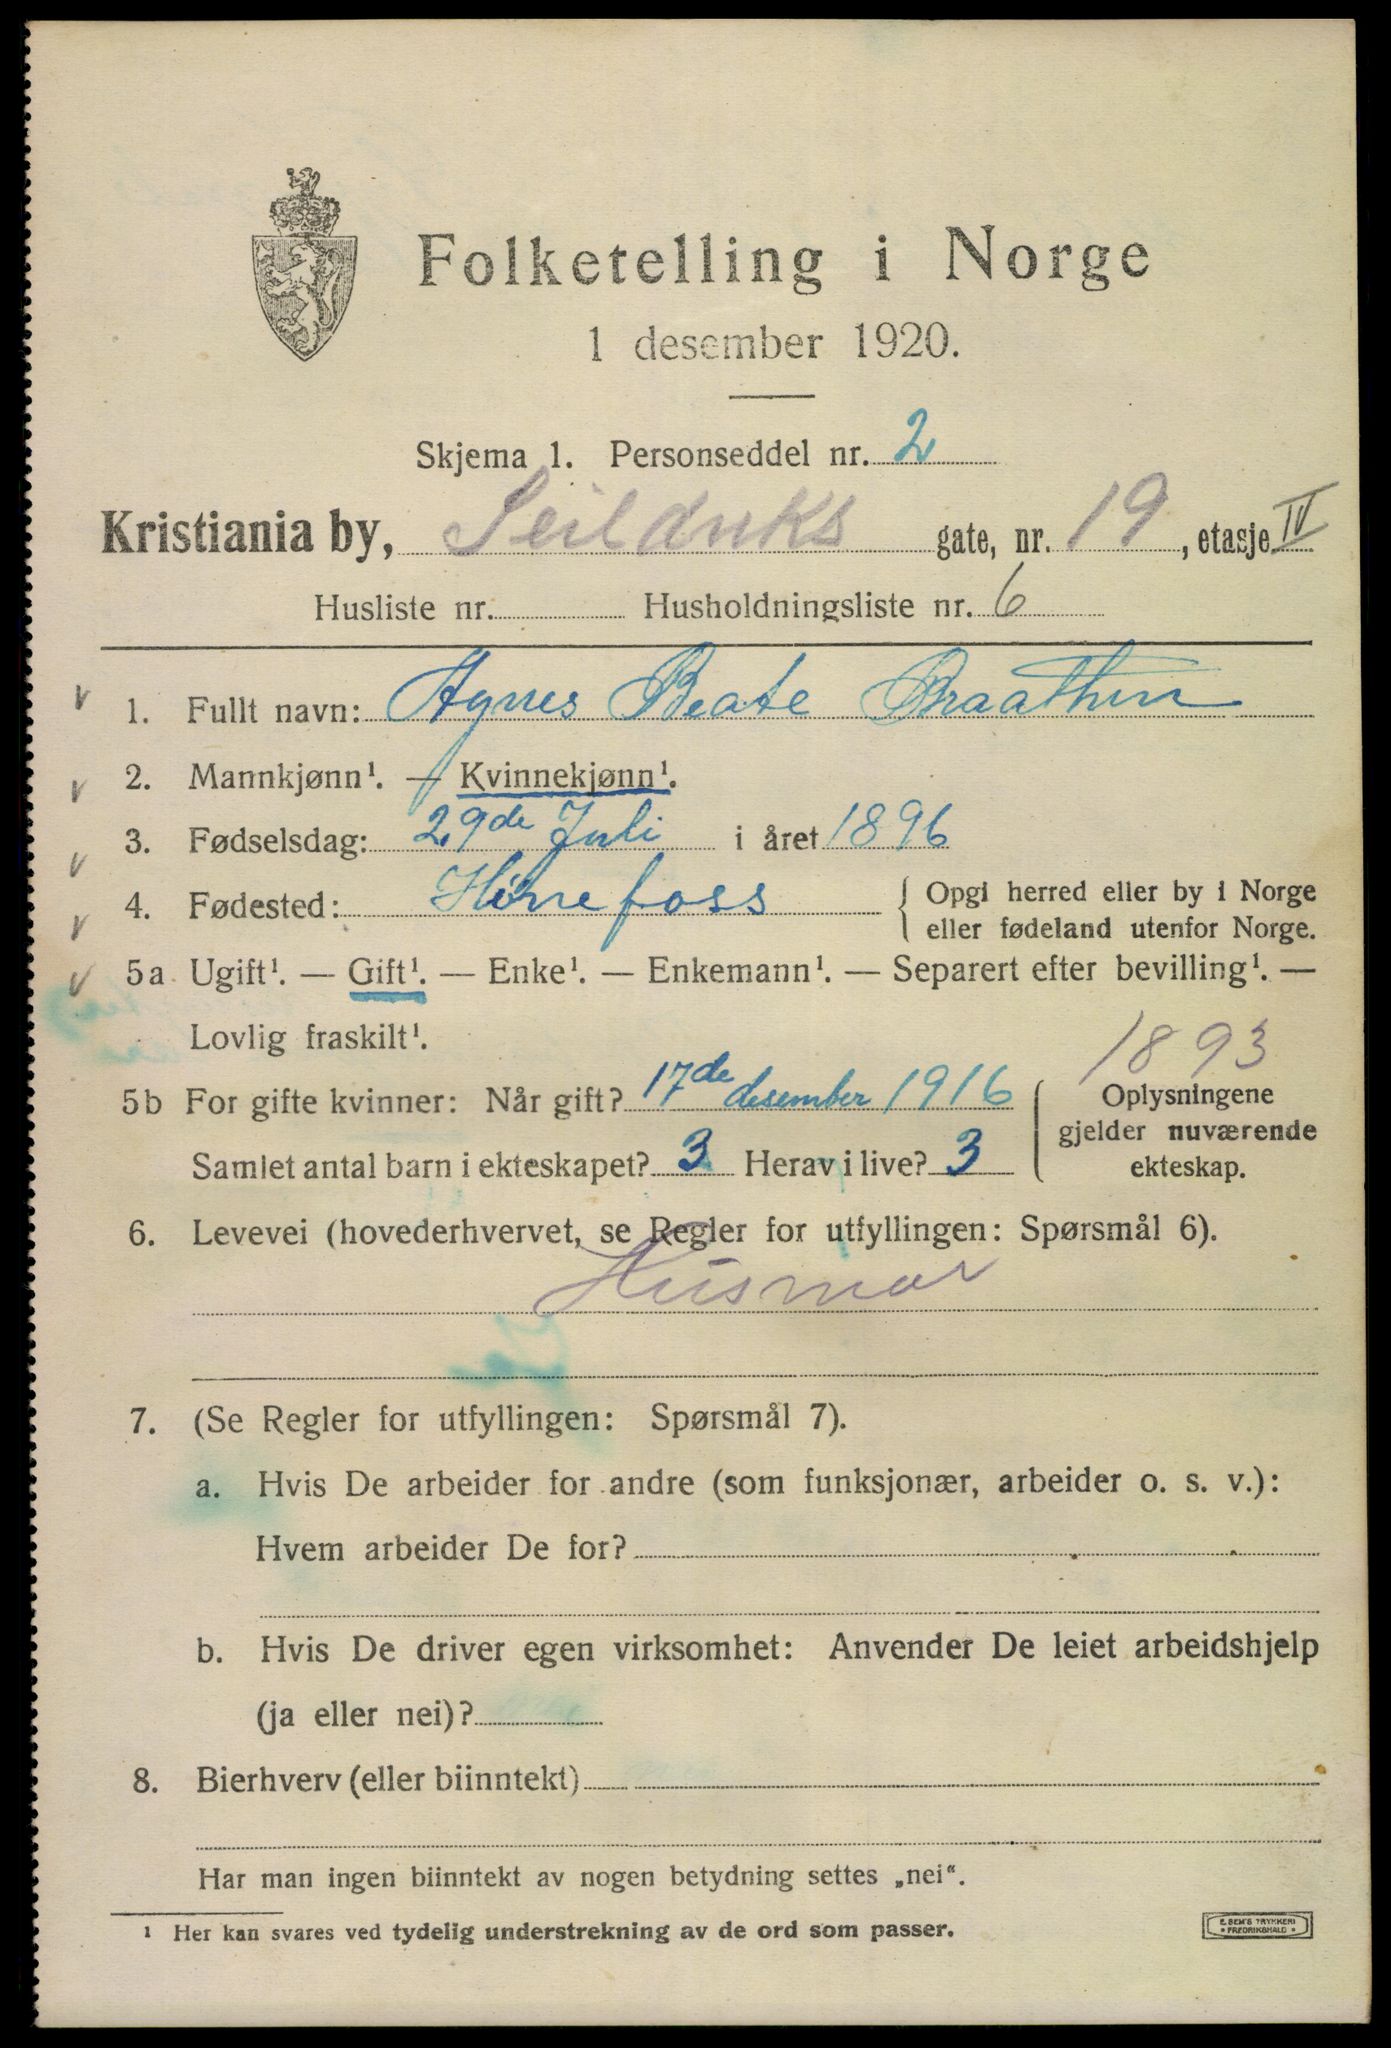 Folketelling i Norge
1 desember 1920.
Skjema 1. Personseddel nr. 2
Kristiania by, Seilduks gate, nr. 19, etasje IV
Husliste nr. Husholdningsliste nr. 6
1. Fullt navn: Agnes Beate Braathen
2. Mannkjønn¹. — Kvinnekjønn¹.
3. Fødselsdag: 29de Juli i året 1896
4. Fødested: Hønefoss { Opgi herred eller by i Norge
eller fødeland utenfor Norge.
5a Ugift¹. — Gift¹. — Enke¹. — Enkemann¹. — Separert efter bevilling¹. —
Lovlig fraskilt¹.
1893
5b For gifte kvinner: Når gift? 17de desember 1916
Samlet antal barn i ekteskapet? 3 Herav i live? 3
Oplysningene
gjelder nuværende
ekteskap.
6. Levevei (hovederhvervet, se Regler for utfyllingen: Spørsmål 6).
Husmor
7. (Se Regler for utfyllingen: Spørsmål 7).
a. Hvis De arbeider for andre (som funksjonær, arbeider o. s. v.):
Hvem arbeider De for?
b. Hvis De driver egen virksomhet: Anvender De leiet arbeidshjelp
(ja eller nei)?
8. Bierhverv (eller biinntekt)
Har man ingen biinntekt av nogen betydning settes „nei“.
¹ Her kan svares ved tydelig understrekning av de ord som passer.
E. SEM'S TRYKKERI
• FREDRIKSHALD •